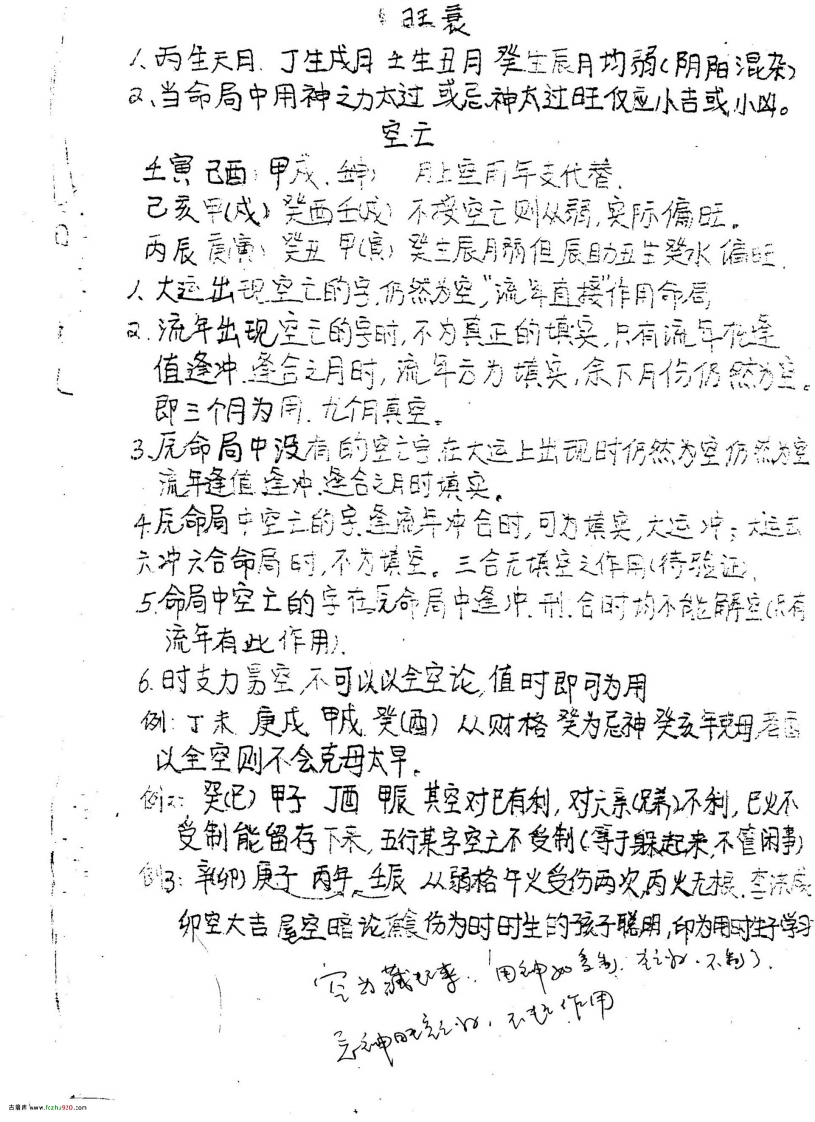 旺衰
1、丙生天月、丁生戌月 土生丑月 癸生辰月均弱(阴阳混杂)
2、当命局中用神之力太过 或忌神太过旺仅应小吉或小凶。
空亡
壬寅 己酉 甲戌 月上空用年支代替.
己亥 甲(戌) 癸酉 壬(戌) 不按空亡则从弱,实际偏旺。
丙辰 庚(寅) 癸丑 甲(寅) 癸生辰月弱但辰助丑生癸水偏旺.
1、大运出现空亡的字仍然为空,"流年直接"作用命局
2、流年出现空亡的字时,不为真正的填实,只有流年在逢
值逢冲、逢合之月时,流年方为填实,余下月份仍然为空。
即三个月为用、九个月真空。
3、原命局中没有的空亡字在大运上出现时仍然为空仍然为空
流年逢值、逢冲、逢合之月时填实。
4、原命局中空亡的字逢流年冲合时,可为填实,大运冲;大运
六冲六合命局时,不为填空。三合无填空之作用(待验证).
5、命局中空亡的字在原命局中逢冲、刑、合时均不能解空(只有
流年有此作用).
6、时支力易空,不可以以全空论,值时即可为用
例:丁未 庚戌 甲戌 癸(酉) 从财格 癸为忌神 癸亥年克母,若
以全空则不会克母太早。
例2:癸(巳) 甲子 丁酉 甲辰 其空对巳有利,对六亲(兄弟)不利,巳火不
受制能留存下来,五行某字空亡不受制(等于躲起来,不管闲事)
例3:辛(卯) 庚子 丙午 壬辰 从弱格午火受伤两次,丙火无根、
卯空大吉 尾空暗论 食伤为时时生的孩子聪明,印为用时生子学习
空为藏起来、用神如受制、不制了.
忌神旺 不起作用
古籍库 www.fozhu920.com